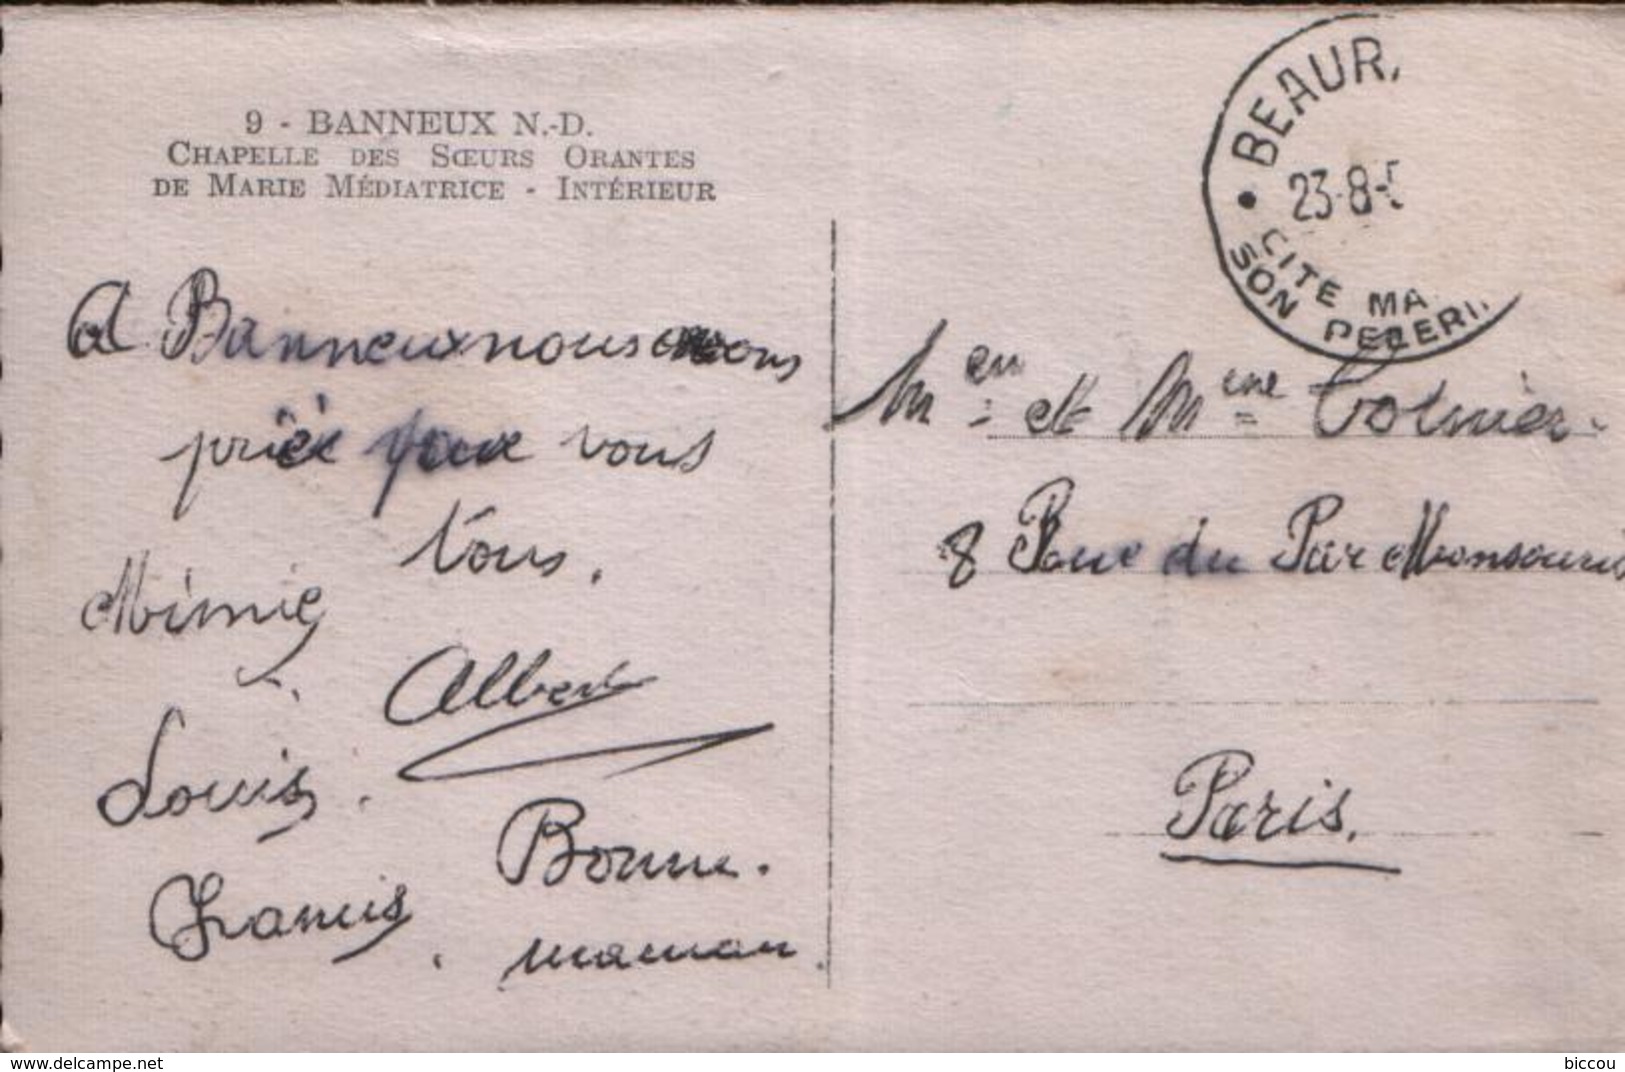 9 - BANNEUX N.-D.
CHAPELLE DES SŒURS ORANTES
DE MARIE MÉDIATRICE - INTÉRIEUR
A Banneux nous avons
priée pour vous
tous.
Mimie
Albert
Louis.
Francis.
Bonne.
maman.
BEAUR.
23-8-5
CITE MA
SON PELERI.
Mr et Mme
8 Rue du Parc Monsouris
Paris.
delcampe.net
biccou